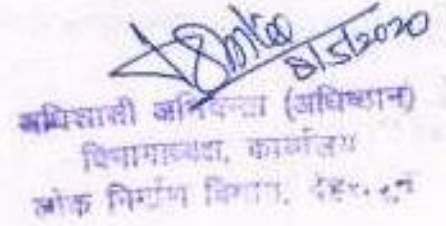 8/5/2020
अधिशासी अभियन्ता (अधिष्ठान)
विभागाध्यक्ष, कार्यालय
लोक निर्माण विभाग, देहरादून